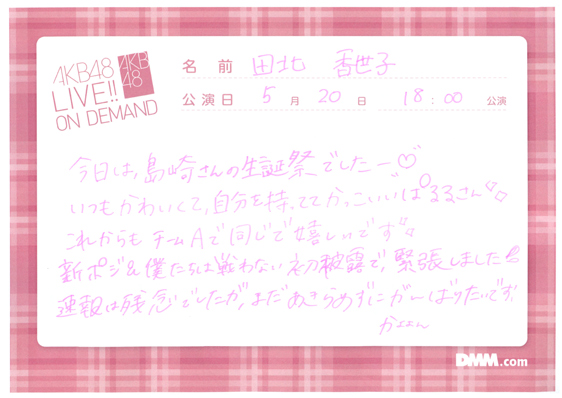 AKB48
LIVE!!
ON DEMAND
AKB
48
名前 田北 香世子
公演日 5月 20日 18:00 公演
今日は、島崎さんの生誕祭でしたー♡
いつもかわいくて、自分を持っててかっこいいぱるるさん
これからもチームAで同じで嬉しいです
新ポジ&僕たちは戦わない初披露で、緊張しました
速報は残念でしたが、まだあきらめずにがんばりたいです
かよよん
DMM.com